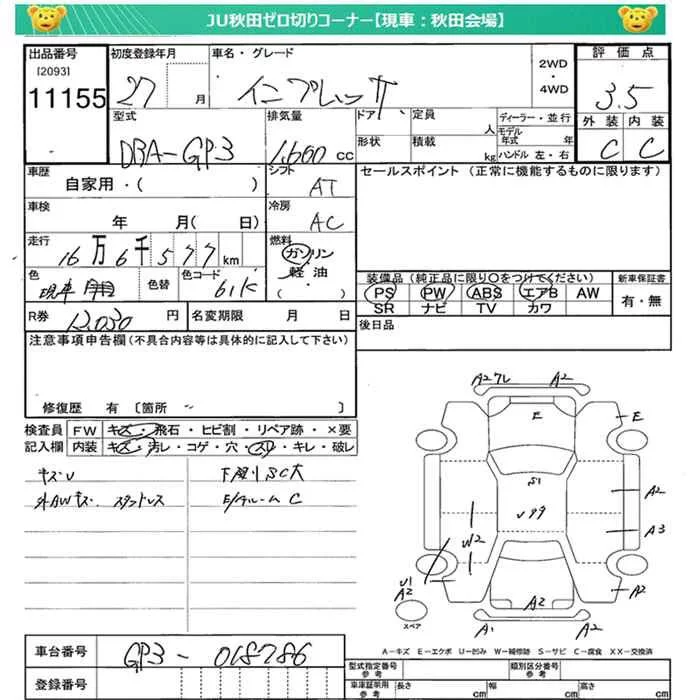 JU秋田ゼロ切りコーナー【現車：秋田会場】
出品番号 初度登録年月 車名・グレード 2WD ・ 4WD 評価点
[2093]
11155 27 月 インプレッサ 3.5
型式 排気量 ドア 定員 人 ディーラー・並行 外装 内装
モデル年式 年
DBA-GP3 1,600 cc 形状 積載 kg ハンドル 左・右 C C
車歴 シフト セールスポイント (正常に機能するものに限ります)
自家用・( ) AT
車検 冷房
年 月( 日) AC
走行 燃料
16万6千577km ガソリン
軽油
・
( )
色 色替 色コード 装備品 (純正品に限り○をつけてください) 新車保証書
現車 61K PS PW ABS エアB AW 有・無
SR ナビ TV カワ
R券 12,030 円 名変期限 月 日 後日品
注意事項申告欄(不具合内容等は具体的に記入して下さい)
修復歴 有 〔箇所 〕
検査員 FW キズ・飛石・ヒビ割・リペア跡・×要
記入欄 内装 キズ・汚レ・コゲ・穴・スレ・キレ・破レ
キズU 下廻りSC大
外AWキズ. スタッドレス E/gルームC
A2 フレ A2
E E
S1
A2
U99
A3
U2
U1
A2 A2
A2
スペア
A1 A2
A-キズ E-エクボ U-凹み W-補修跡 S-サビ C-腐食 XX-交換済
車台番号 GP3-018786
登録番号
型式指定番号 参考 類別区分番号 参考
車庫証明用 参考 長さ cm 幅 cm 高さ cm